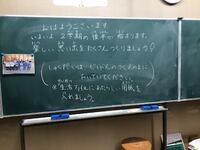 おはようございます。
いよいよ 2学期の 後半が 始まります。
楽しい 思い出を たくさん つくりましょう!
しゅくだいは、じぶんのつくえの上に
おいていてください。
生活ファイルに
入れましょう。